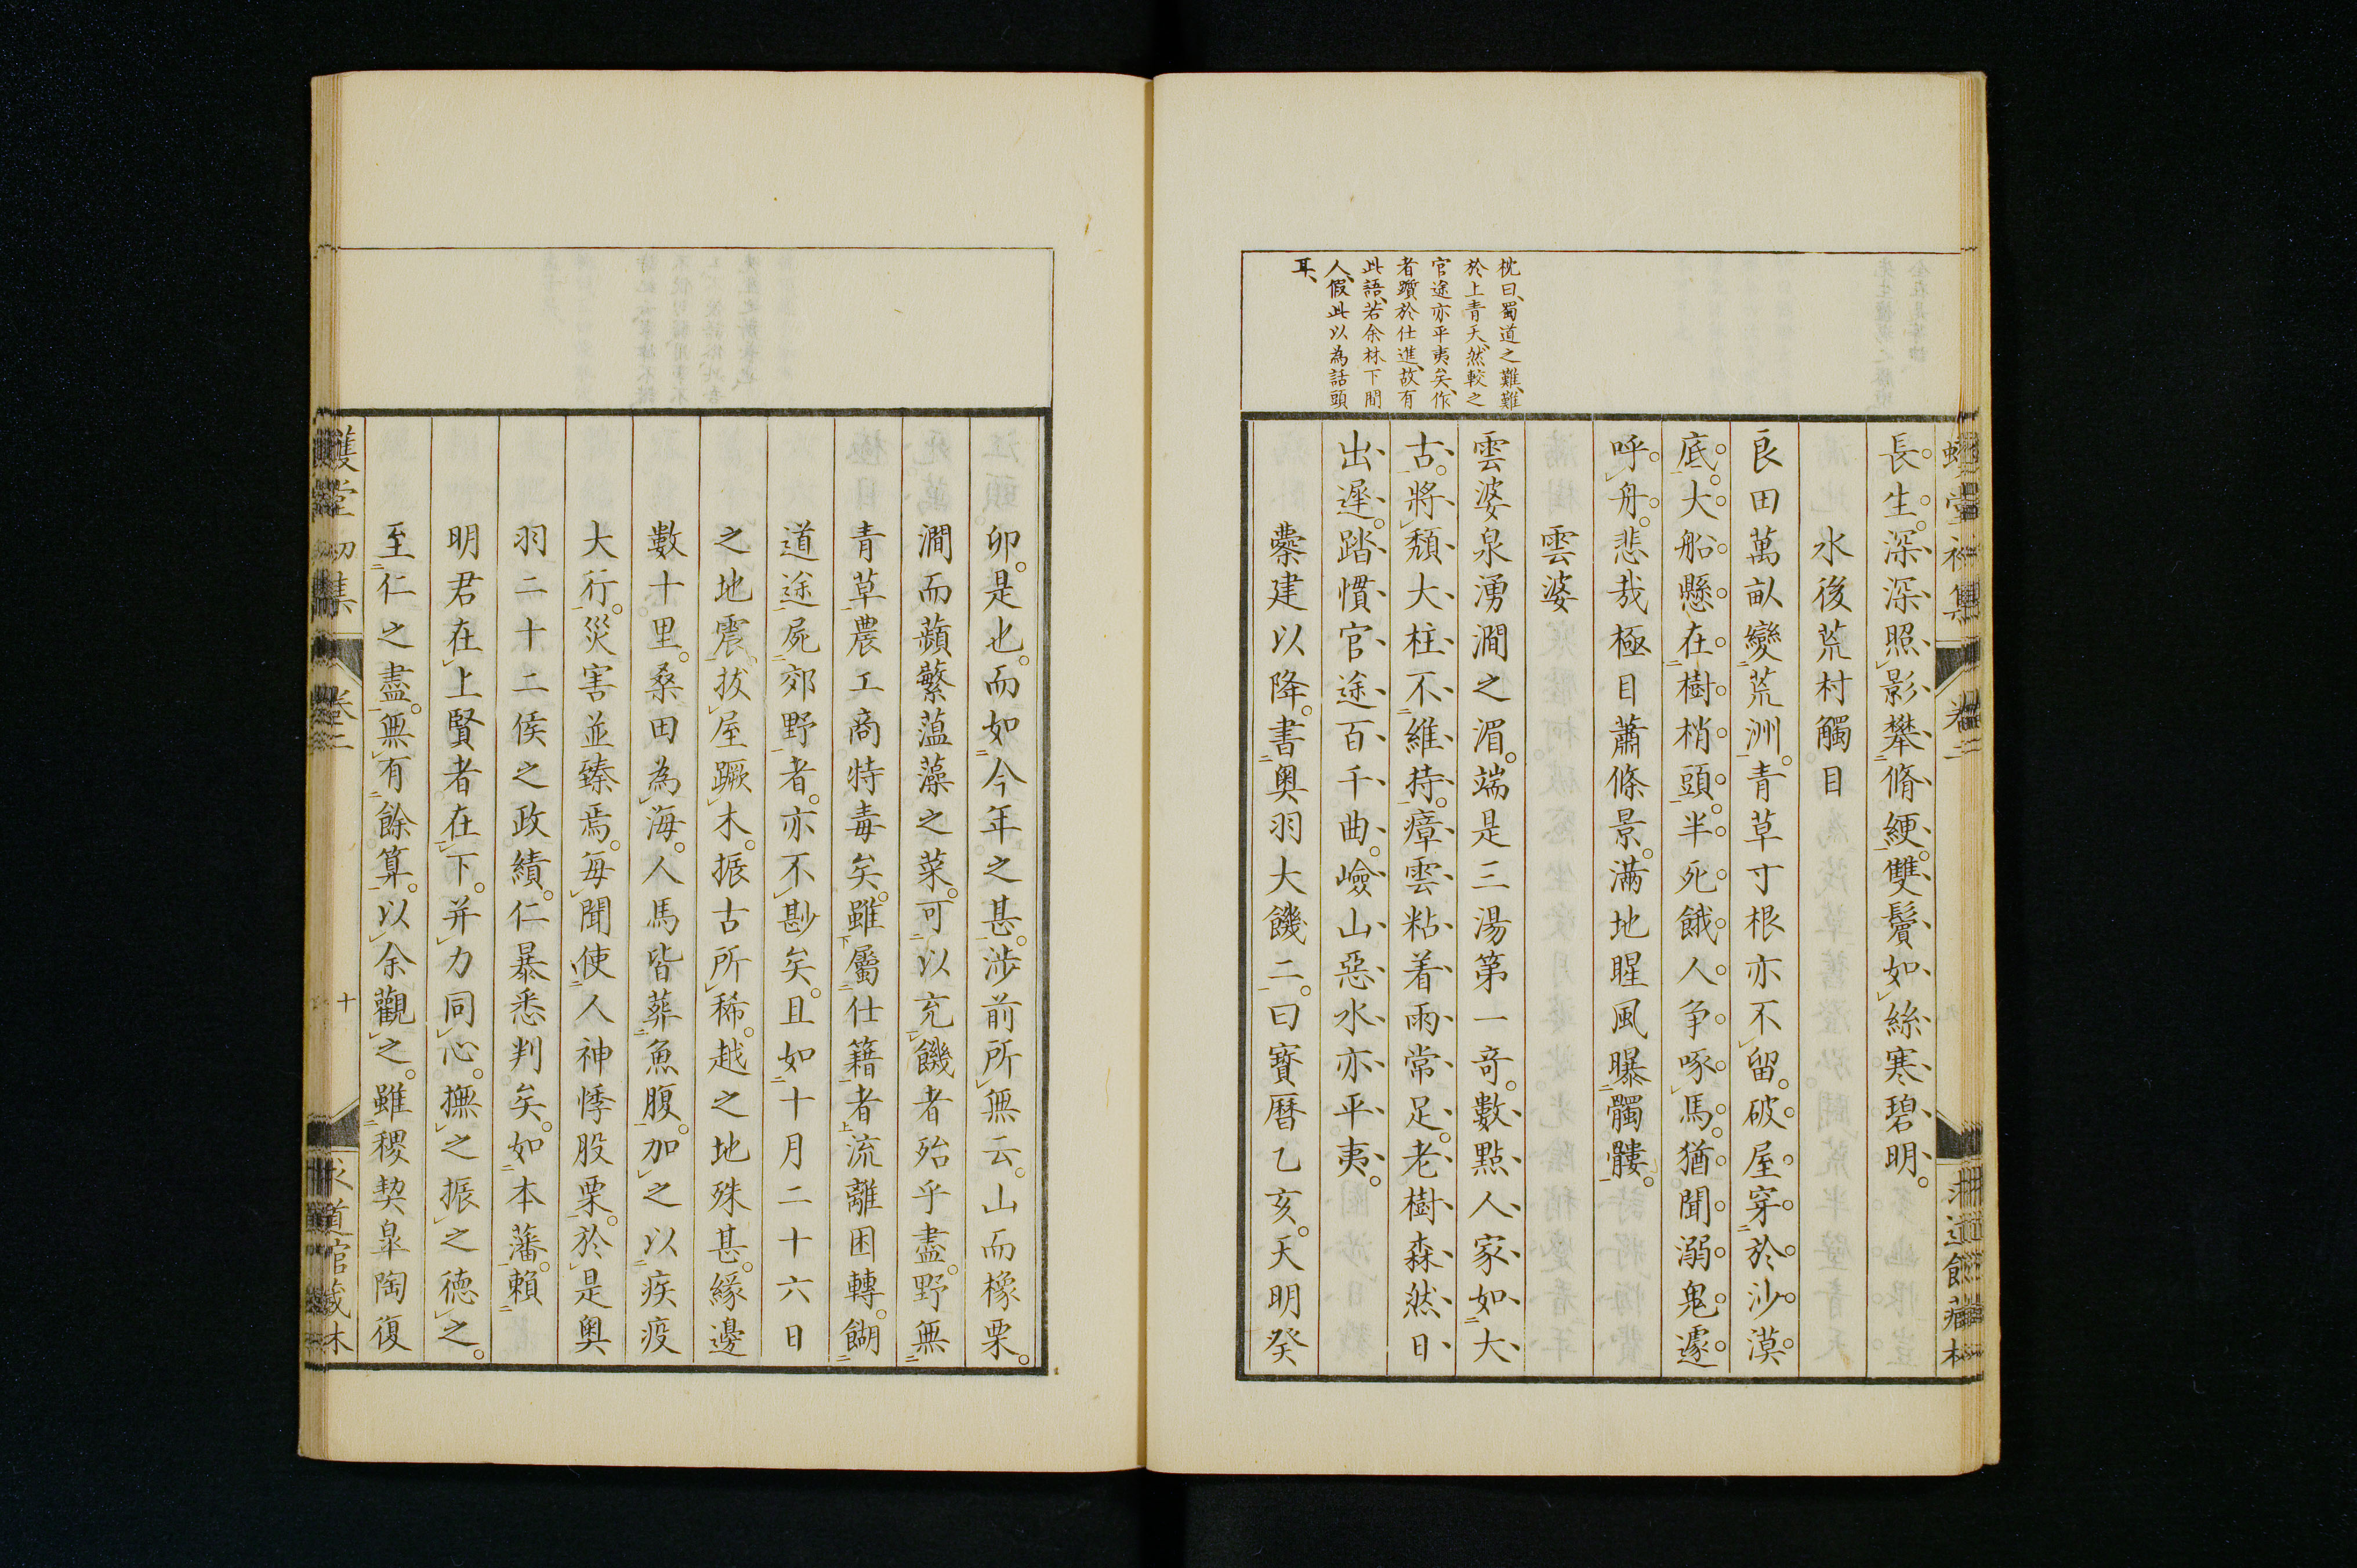 長生。深深照影攀脩綆。雙鬢如絲寒碧明。
水後荒村觸目
良田萬畝變荒洲。青草寸根亦不留。破屋穿於沙漠
底。大船懸在樹梢頭。半死餓人争啄馬。猶聞溺鬼遽
呼舟。悲哉極目蕭條景。滿地腥風曝髑髏。
雲婆
雲婆泉湧澗之湄。端是三湯第一奇。數點人家如大
古。將頽大柱不維持。瘴雲粘着雨常足。老樹森然日
出遲。踏慣官途百千曲。嶮山惡水亦平夷。
枕曰、蜀道之難、難
於上青天、然較之
官途亦平夷矣、作
者躓於仕進、故有
此語、若余林下間
人、假此以為話頭
耳、
櫜建以降。書奥羽大饑二。曰寳暦乙亥。天明癸
卯。是也。而如今年之甚。涉前所無云。山而橡栗。
澗而蘋蘩薀藻之菜。可以充饑者殆乎盡。野無
青草農工商特毒矣。雖屬仕籍者流離困轉。餬
道途。屍郊野者。亦不尠矣。且如十月二十六日
之地震。拔屋蹶木。振古所稀。越之地殊甚。緣邊
數十里。桑田為海。人馬皆葬魚腹。加之以疾疫
大行。災害並臻焉。每聞使人神悸股栗。於是奥
羽二十二侯之政績。仁暴悉判矣。如本藩。賴
明君在上賢者在下。并力同心。撫之振之德之。
至仁之盡。無有餘算。以余觀之。雖稷契皐陶復
卷二
十